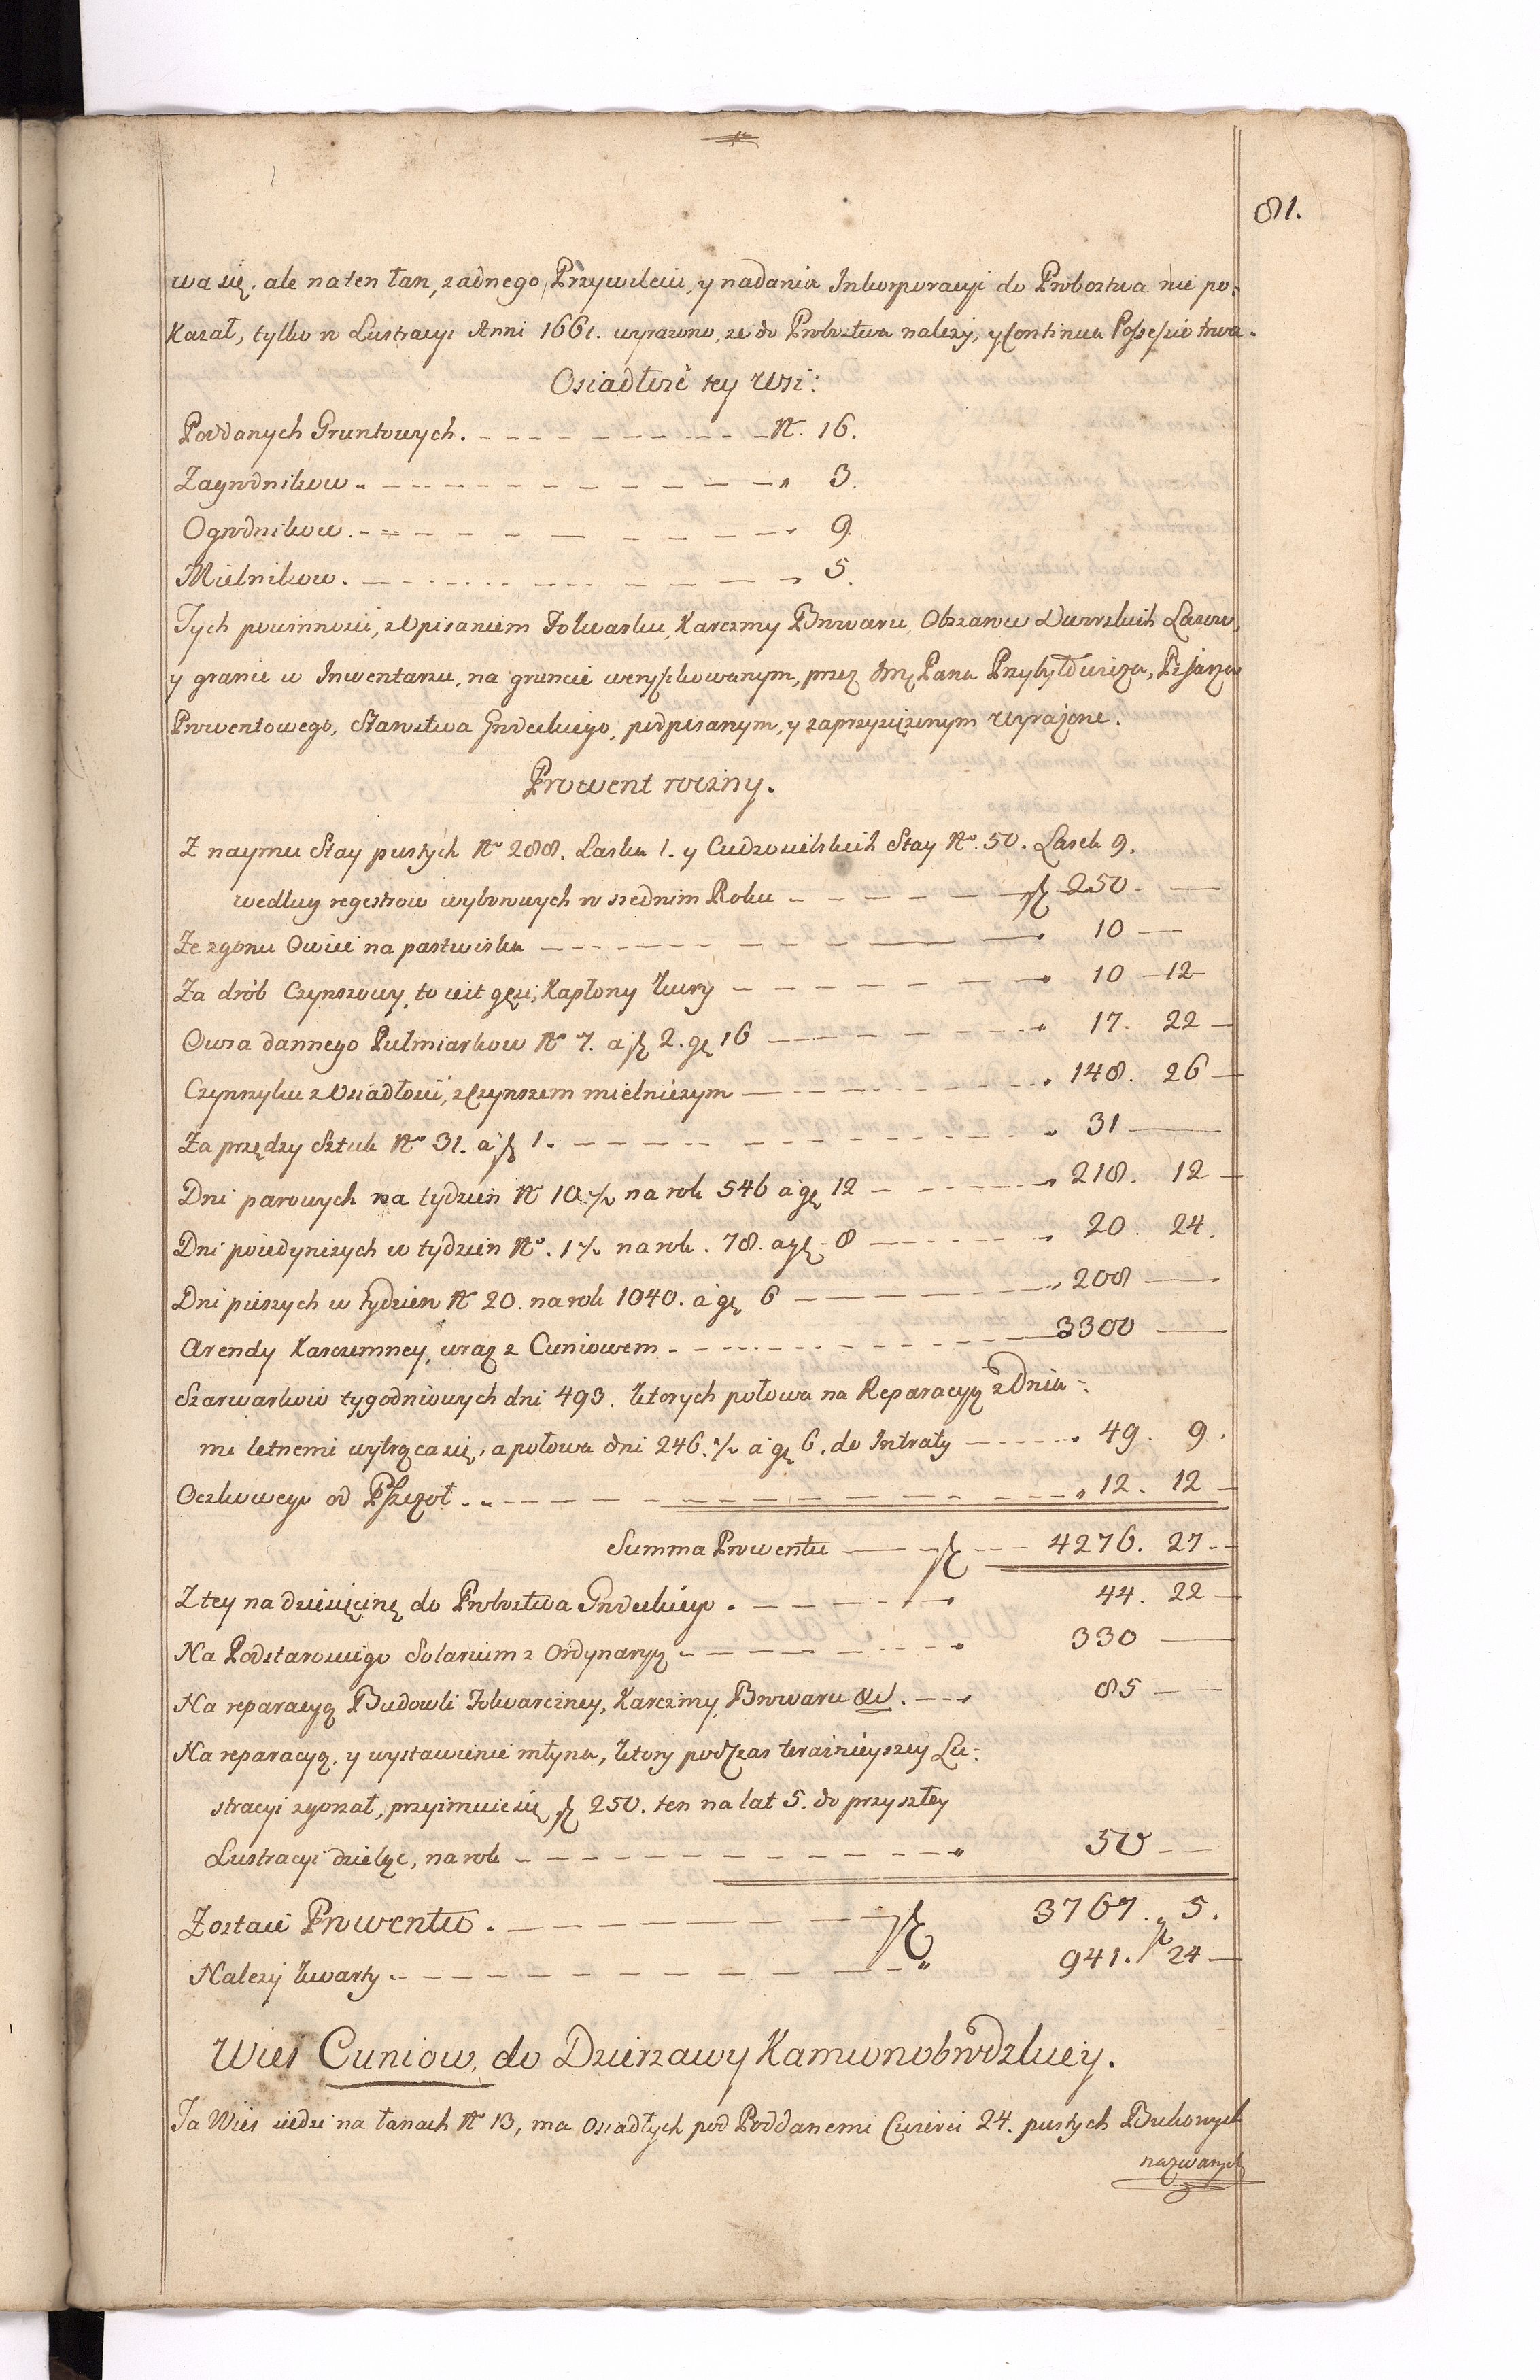 81.
wa się. ale na ten łan, zadnego Przywileiu, y nadania Inkorporacyi do Probostwa nie po-
kazał, tylko w Lustracyi Anni 1661. wyrazono, ze do Probostwa nalezy, y Continua Possessio trwa.
Osiadłość tey Wsi:
Poddanych Gruntowych. N. 16.
Zagrodnikow. " 3.
Ogrodnikow. " 9.
Mielnikow. " 5.
Tych powinnosci, z Opisaniem Folwarku, Karczmy Browaru, Obszarow Dworskich Lasow,
y granic w Inwentarzu, na gruncie weryfikowanym, przez Jmę Pana Przybyłowicza, Pisarza
Prowentowego, Starostwa Grodeckiego, podpisanym, y zaprzysiężonym wyrażone.
Prowent roczny.
Z naymu Stay pustych No 288. Laska 1. y Cudzosielskich Stay No 50. Lasek 9.
według regestrow wybornych w srednim Roku f 250 -
Ze zgonu Owiec na pastwiska " 10 -
Za drób Czynszowy, to iest gęsi, Kapłony kury " 10 - 12 -
Owsa dannego Pułmiarkow No 7. a f 2. gę 16 " 17. 22 -
Czynszyku z Osiadłości, z Czynszem mielniczym " 148. 26 -
Za przędzy Sztuk No 31. a f 1. " 31 -
Dni parowych na tydzień No 10 ½ na rok 546 a gę 12 " 218. 12 -
Dni poiedynczych w tydzień No. 1 ½ na rok. 78. a gę. 8 " 20. 24.
Dni pieszych w tydzień No 20. na rok 1040. a gę 6 " 208 -
Arendy Karczemney, wraz z Cuniowem. 3300 -
Szarwarkow tygodniowych dni 493. ktorych połowa na Reparacyą z Dnia-
mi letnemi wytrąca się, a połowa dni 246. ½ a gę 6. do Intraty " 49. 9.
Oczkowego od Pszczoł. " 12. 12 -
Summa Prowentu f 4276. 27 -
Z tey na dziesięcinę do Probostwa Grodeckiego. " 44. 22 -
Na Podstarosciego Solarium z Ordynaryą " 330 -
Na reparacyą Budowli Folwarczney, Karczmy, Browaru &c. " 85 -
Na reparacyą, y wystawienie młyna, ktory podczas teraznieyszey Lu-
stracyi zgorzał, przyimuie się f 250. ten na lat 5. do przyszłey
Lustracyi dzieląc, na rok " 50 -
Zostaie Prowentu. f 3767. 5.
Nalezy kwarty. " 941. 24 -
Wieś Cuniow, do Dzierzawy Kamionobrodzkiey.
Ta Wieś siedzi na łanach No 13, ma osiadłych pod Poddanemi Cwierci 24. pustych Bukowych
nazwanych